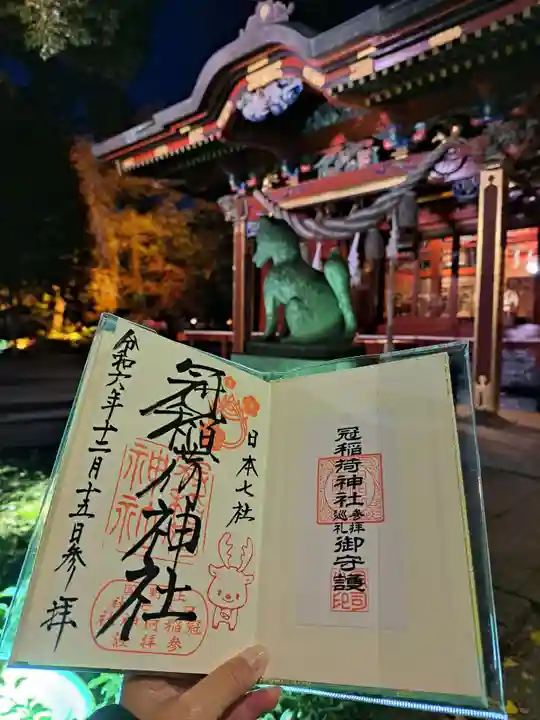 日本七社
冠稲荷神社
令和六年十二月十五日参拝
冠稲荷神社
参拝
巡礼
御守護